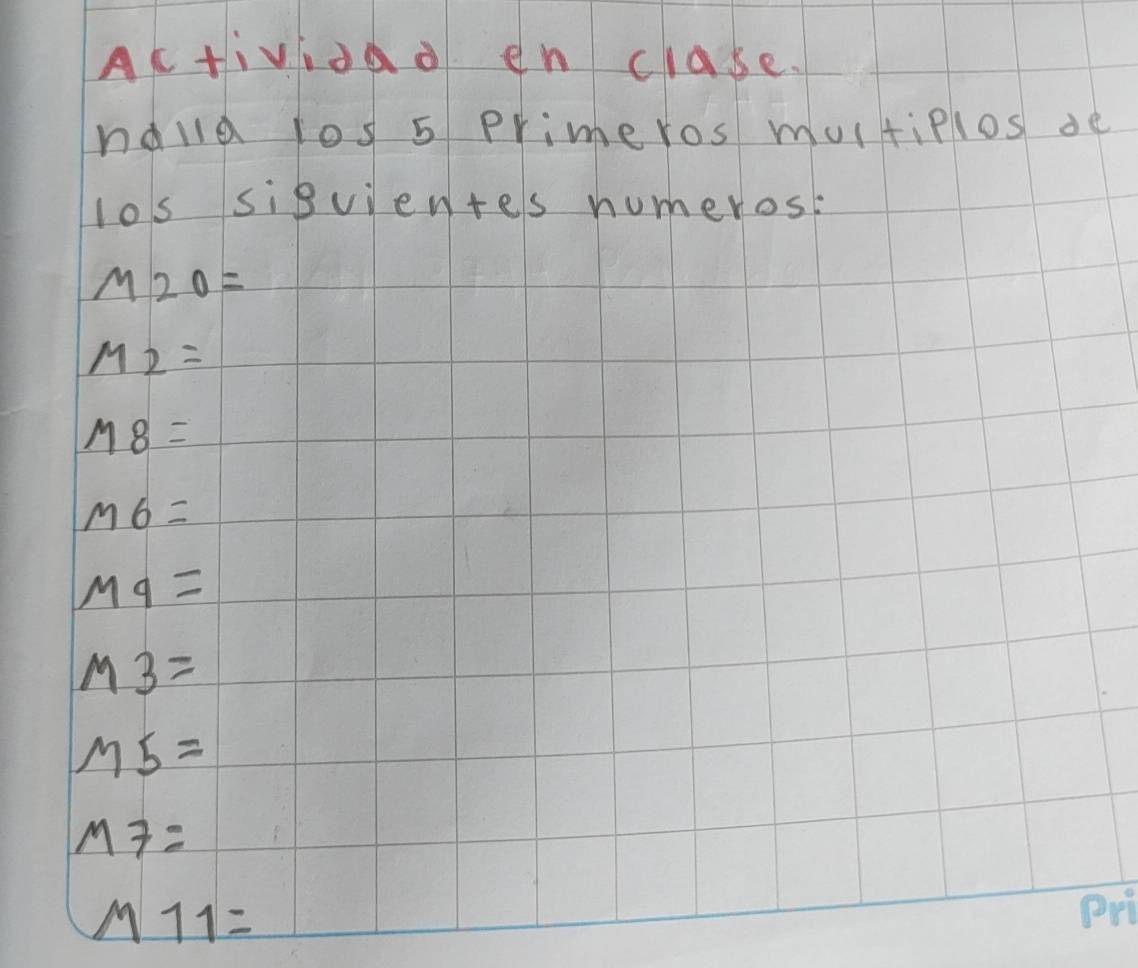 Actividad en clase.
halla los 5 primeros multiplos de
los siguientes numeros:
M20=
M2=
M8=
M6=
M9=
M3=
M5=
M7=
M11=
Pri